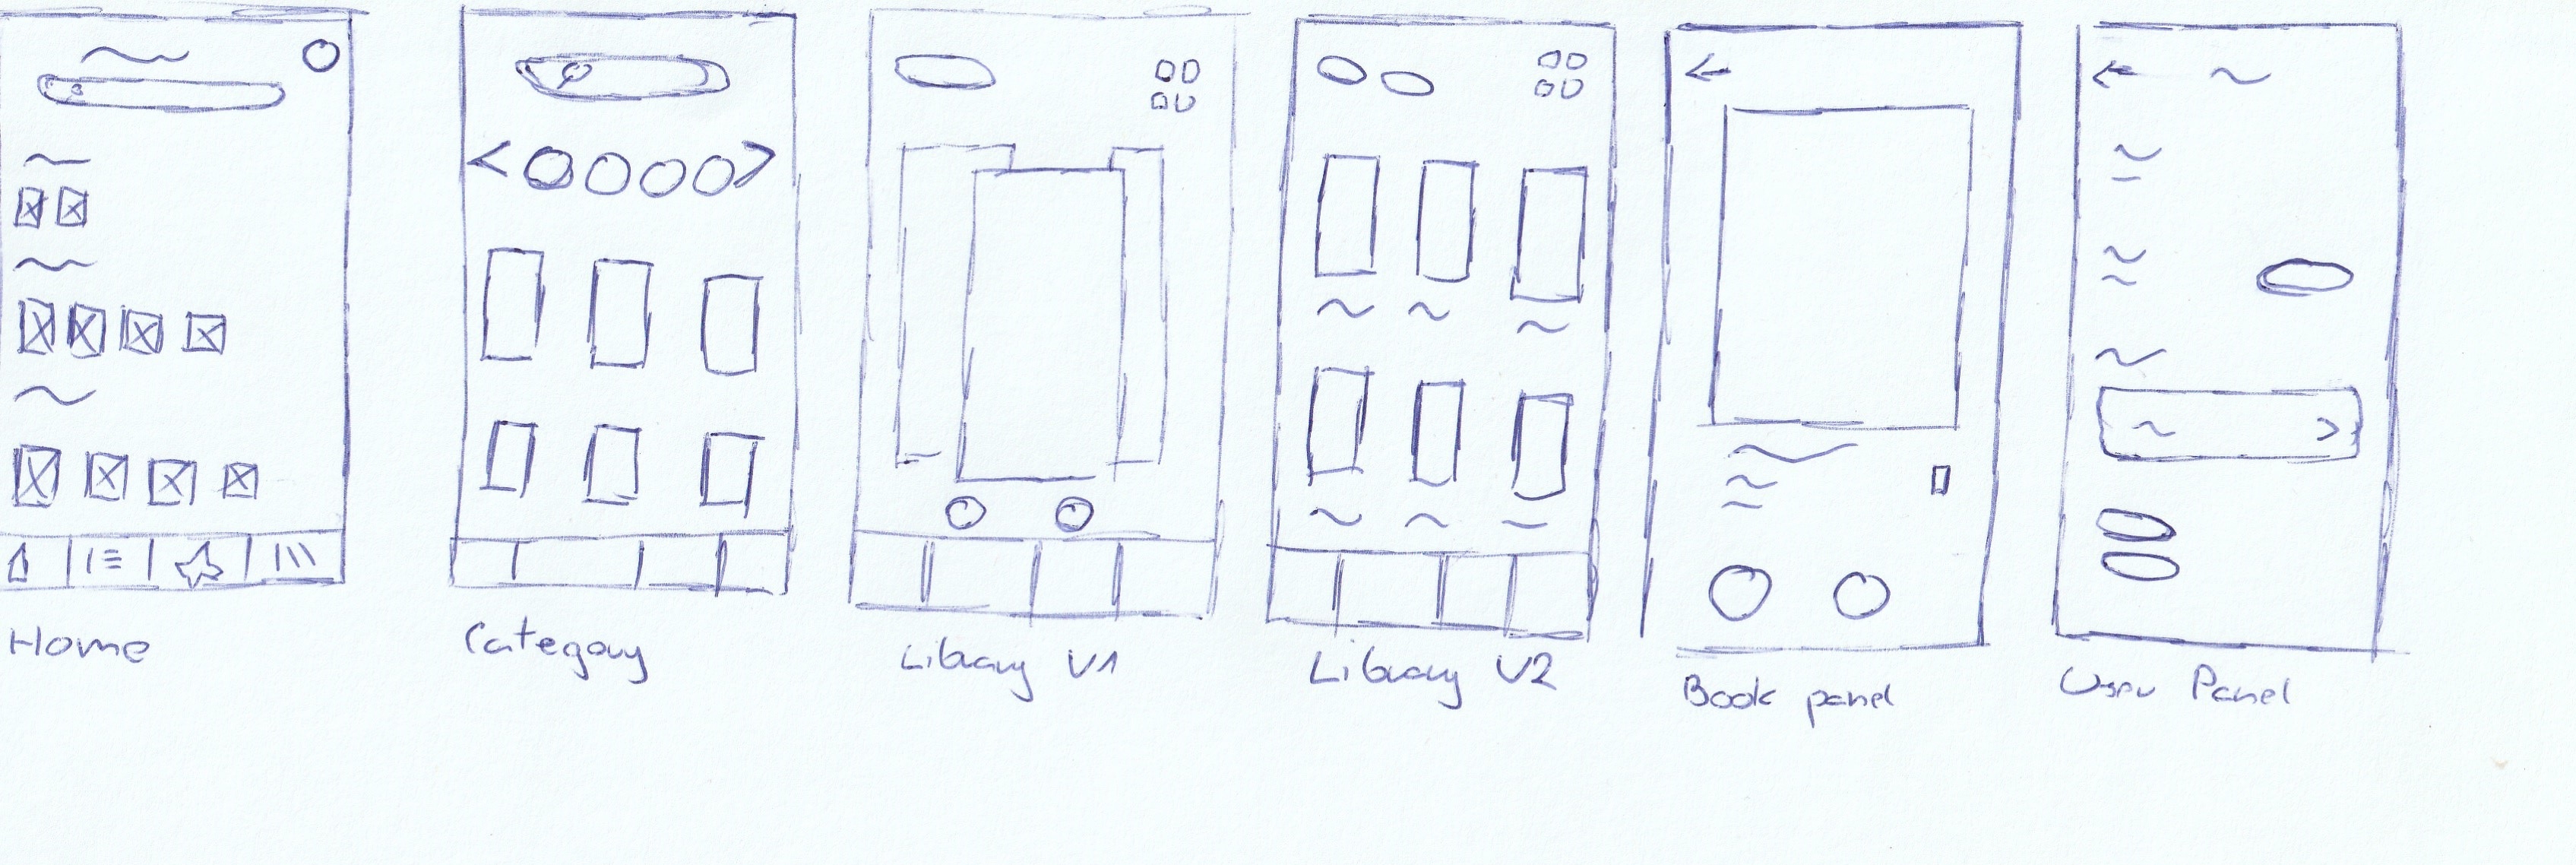 Home
Category
Library V1
Library V2
Book panel
User Panel